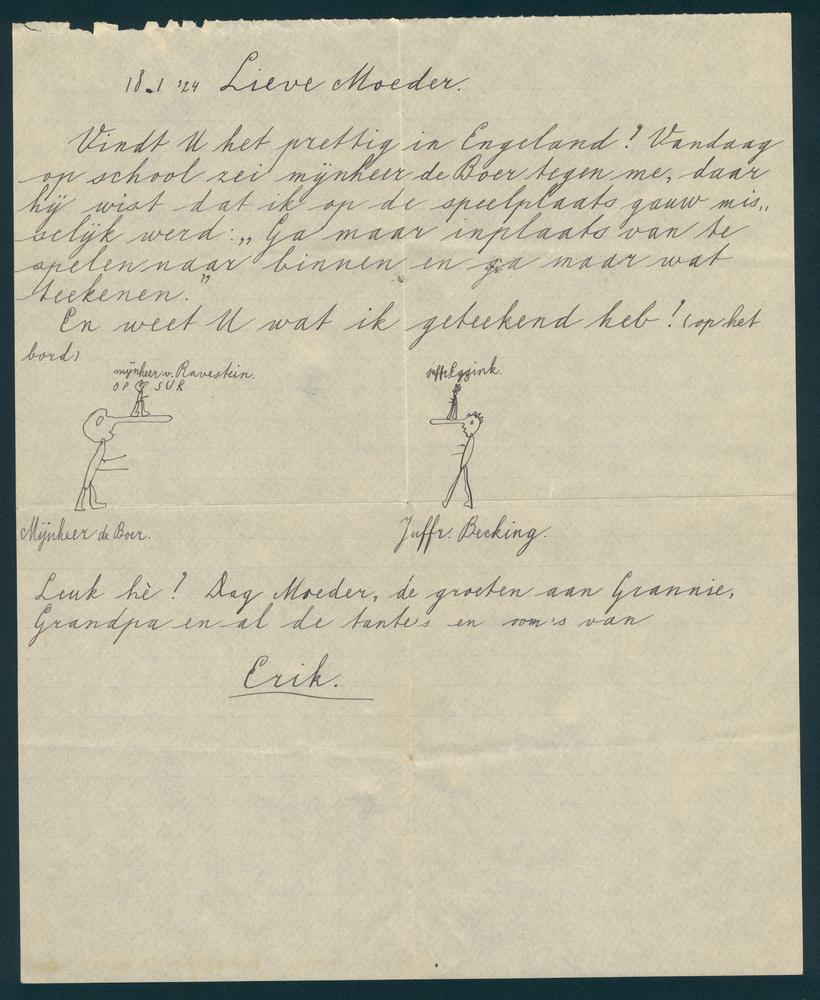 18.1 '24 Lieve Moeder.
Vindt U het prettig in Engeland? Vandaag
op school zei mijnheer de Boer tegen me, daar
hij wist dat ik op de speelplaats gauw mis„
selijk werd: „Ga maar inplaats van te
spelen naar binnen en ga maar wat
teekenen."
En weet U wat ik geteekend heb! (op het
bord)
mijnheer v. Ravestein.
juffr. Eggink.
OP SUR
Mijnheer de Boer.
Juffr. Becking.
Leuk hè? Dag Moeder, de groeten aan Grannie,
Grandpa en al de tante's en oom's van
Erik.